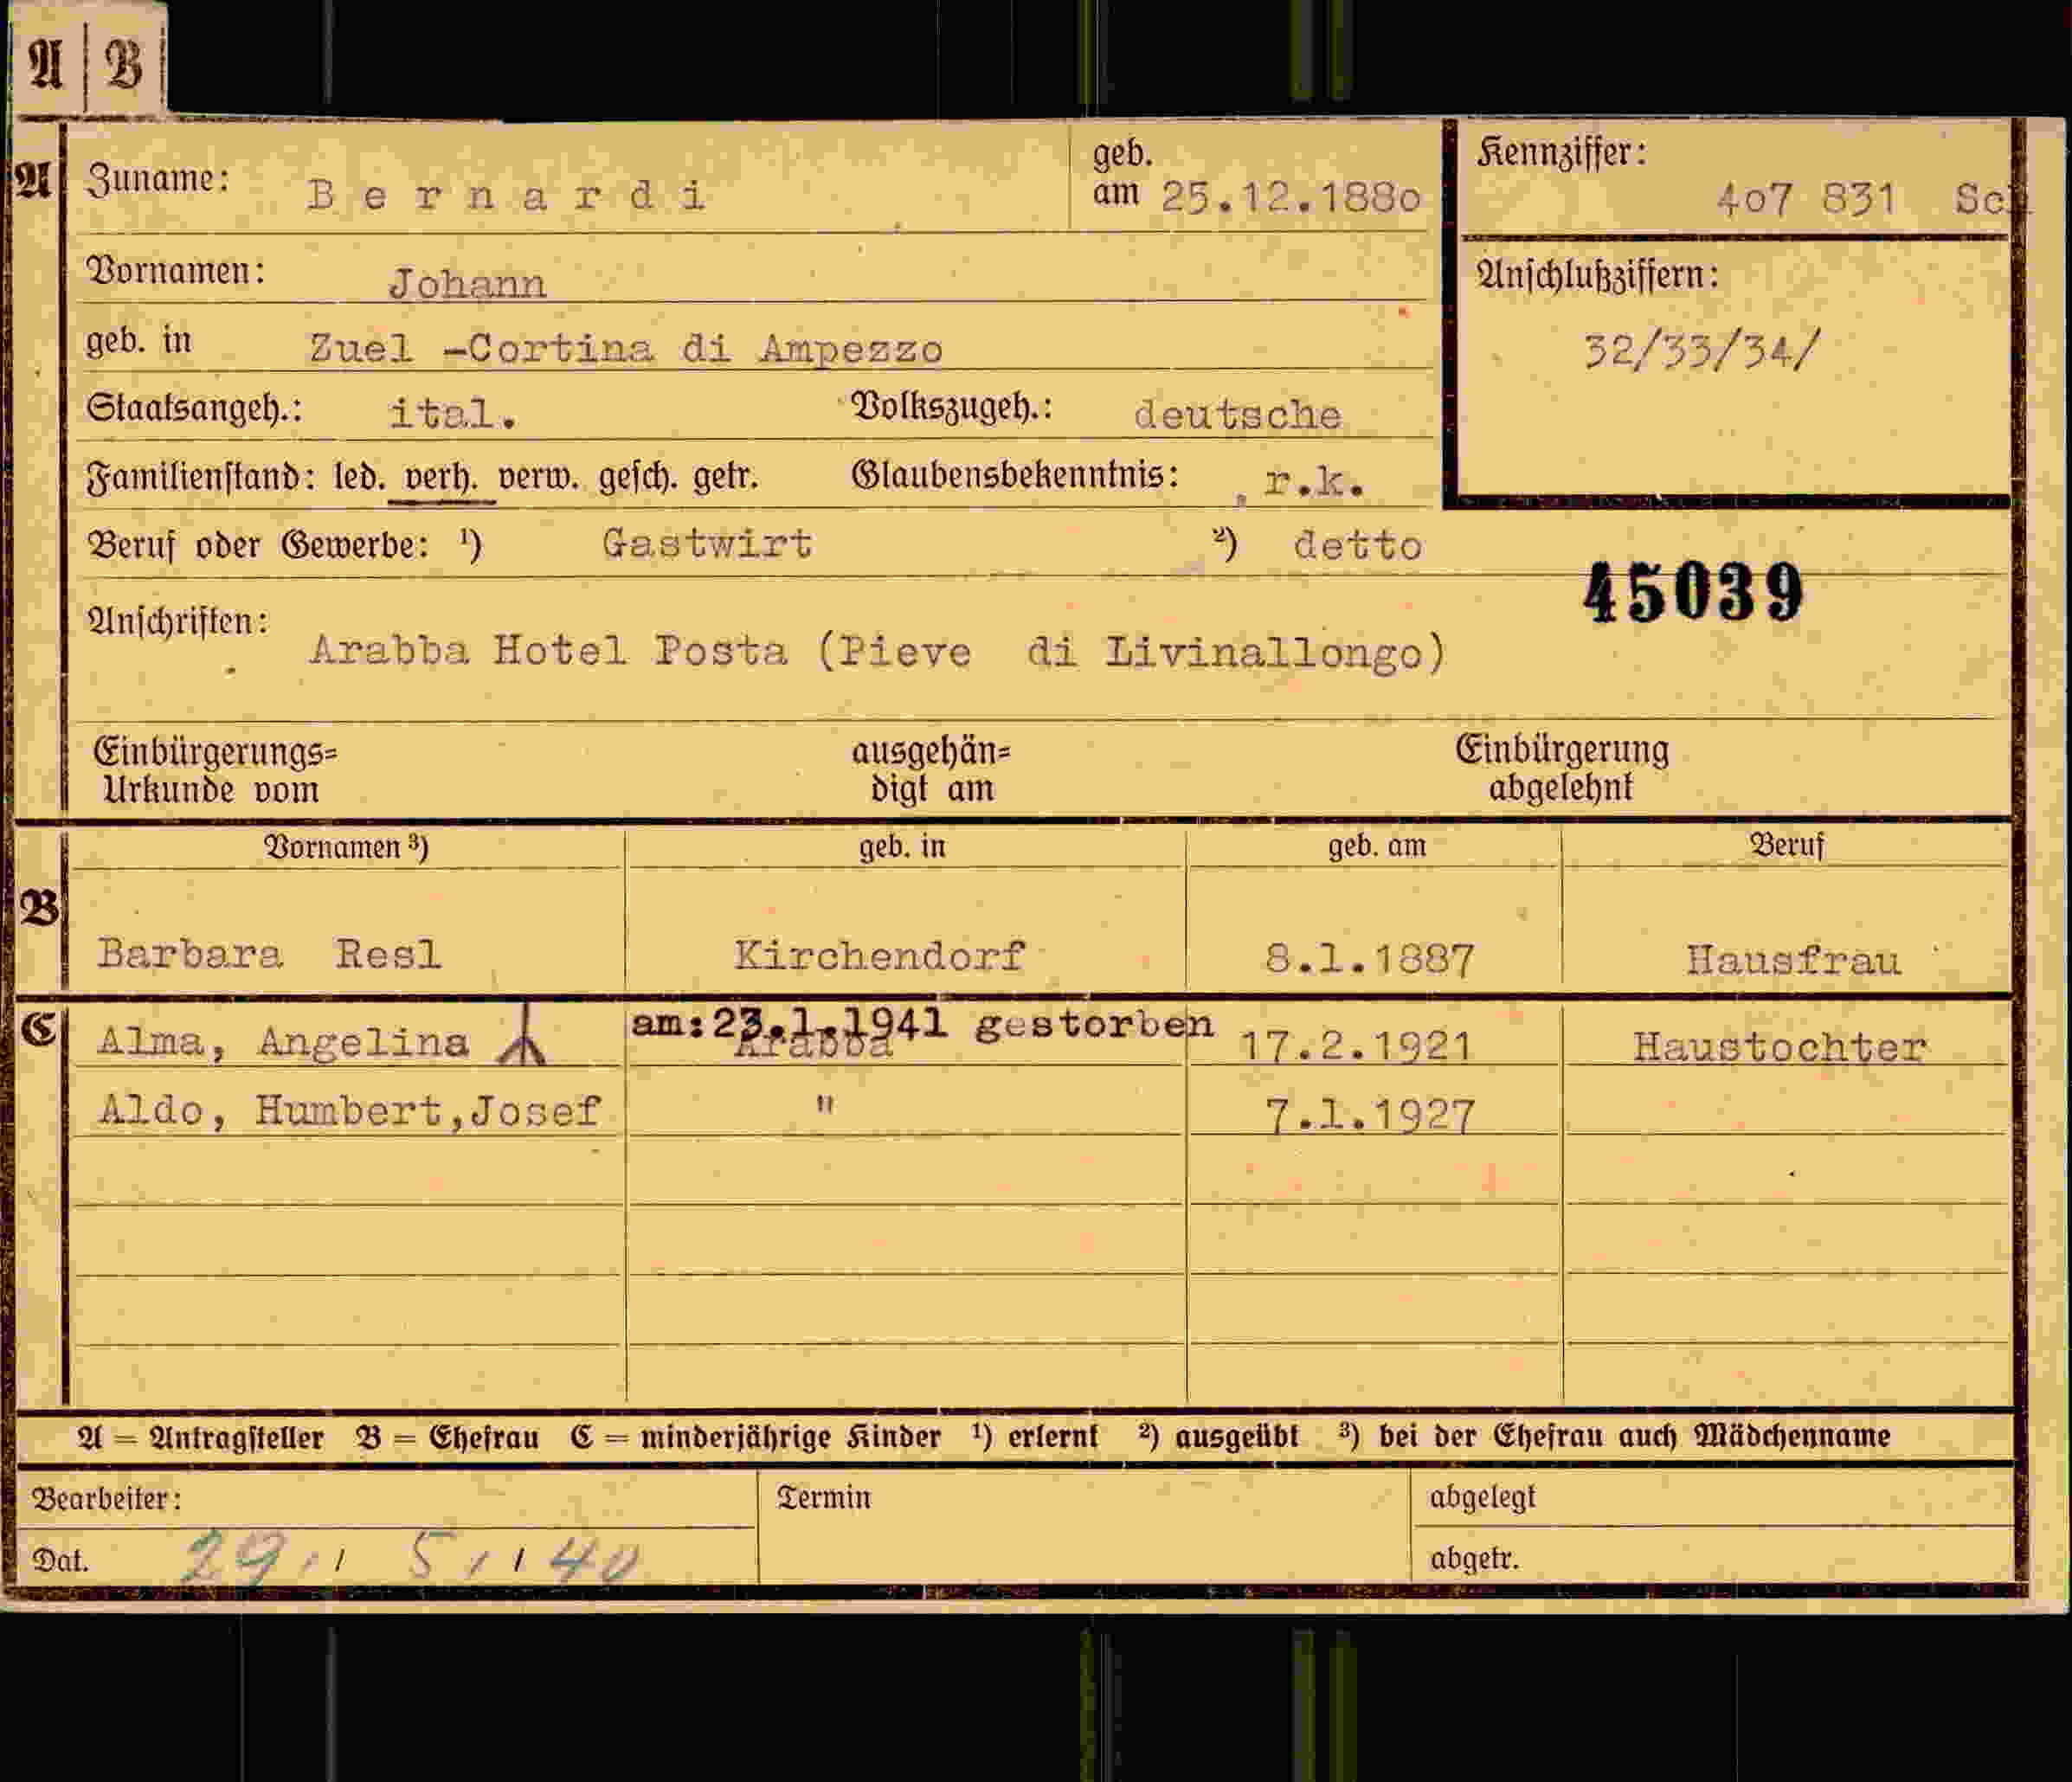 A B
A Zuname: Bernardi geb. am 25.12.188o Kennziffer: 4o7 831 Sch
Vornamen: Johann Anschlußziffern:
geb. in Zuel -Cortina di Ampezzo 32/33/34/
Staatsangeh.: ital. Volkszugeh.: deutsche
Familienstand: led. verh. verw. gesch. getr. Glaubensbekenntnis: r.k.
Beruf oder Gewerbe: ¹) Gastwirt ²) detto
45039
Anschriften: Arabba Hotel Posta (Pieve di Livinallongo)
Einbürgerungs= ausgehän= Einbürgerung
Urkunde vom digt am abgelehnt
Vornamen ³) geb. in geb. am Beruf
B Barbara Resl Kirchendorf 8.1.1887 Hausfrau
am: 23.1.1941 gestorben
C Alma, Angelina Arabba 17.2.1921 Haustochter
Aldo, Humbert,Josef " 7.1.1927
A = Antragsteller B = Ehefrau C = minderjährige Kinder ¹) erlernt ²) ausgeübt ³) bei der Ehefrau auch Mädchenname
Bearbeiter: Termin abgelegt
Dat. 29. / 5. / 40 abgetr.